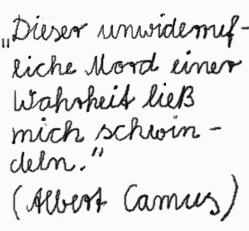 „Dieser unwiderruf-
liche Mord einer
Wahrheit ließ
mich schwin-
deln."
(Albert Camus)